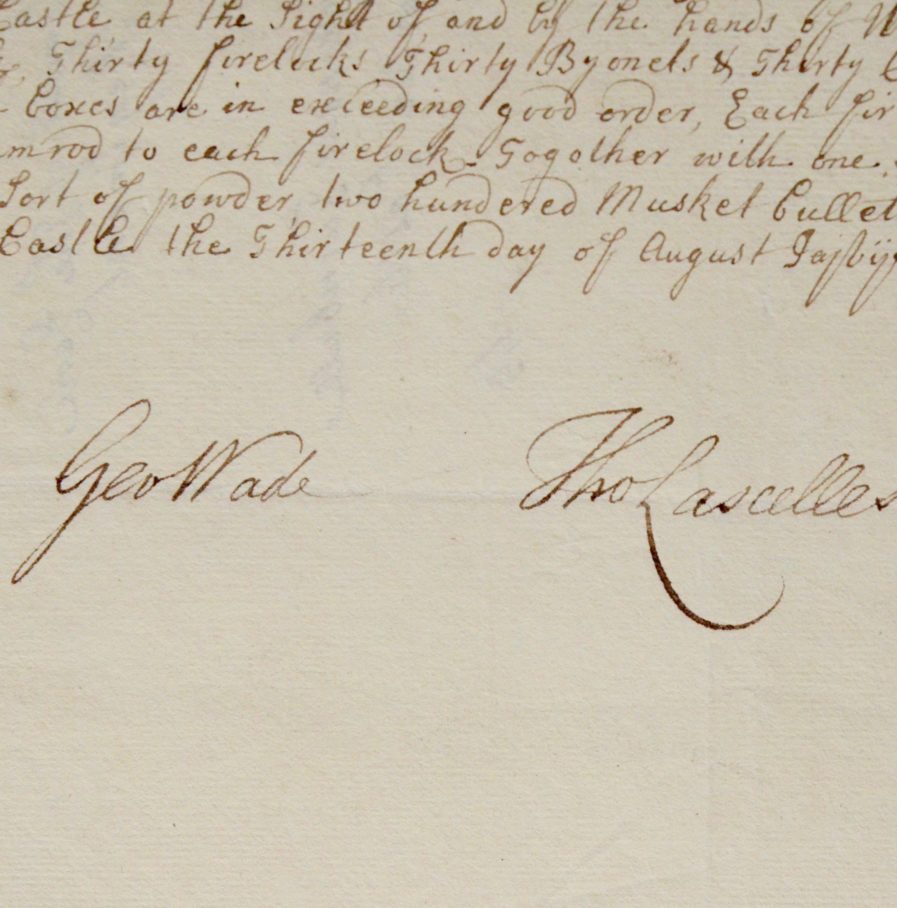 Castle at the Sight of and by the hands of W
Thirty firelocks Thirty Byonets & Thirty
boxes are in exceeding good order, Each fir
mrod to each firelock Togother with one
Sort of powder two hundered Musket bullet
Castle the Thirteenth day of August Jajbij
Geo Wade
Tho Lascelles